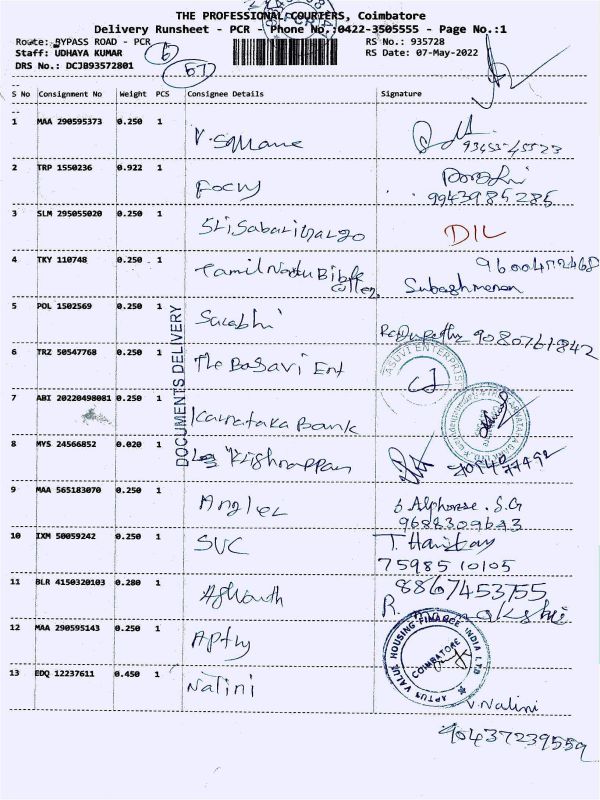 THE PROFESSIONAL COURIERS, Coimbatore
Delivery Runsheet - PCR - Phone No.:0422-3505555 - Page No.:1
Route: BYPASS ROAD - PCR
RS No.: 935728
Staff: UDHAYA KUMAR
RS Date: 07-May-2022
DRS No.: DCJB93572801
S No Consignment No Weight PCS Consignee Details Signature
1 MAA 290595373 0.250 1 V. Square
2 TRP 1550236 0.922 1 Focus 9943985285
3 SLM 295055020 0.250 1 Sri, Sabari
4 TKY 110748 0.250 1 Tamil Nadu Bible
Subashmenon
5 POL 1502569 0.250 1 Surabhi 9080761842
6 TRZ 50547768 0.250 1 The Basavi Ent
ASUVI ENTERPRISE
7 ABI 20220498081 0.250 1 Karnataka Bank
DOCUMENTS DELIVERY
8 MYS 24566852 0.020 1 Krishnappan
9 MAA 565183070 0.250 1 Angler Alphonse. S.G
9688309643
10 IXM 50059242 0.250 1 SVC T.
75985 10105
11 BLR 4150320103 0.280 1 Ashwath 8867453755
R.
12 MAA 290595143 0.250 1 Aptus
APTUS VALUE HOUSING FINANCE INDIA LTD
COIMBATORE
13 EDQ 12237611 0.450 1 Nalini V. Nalini